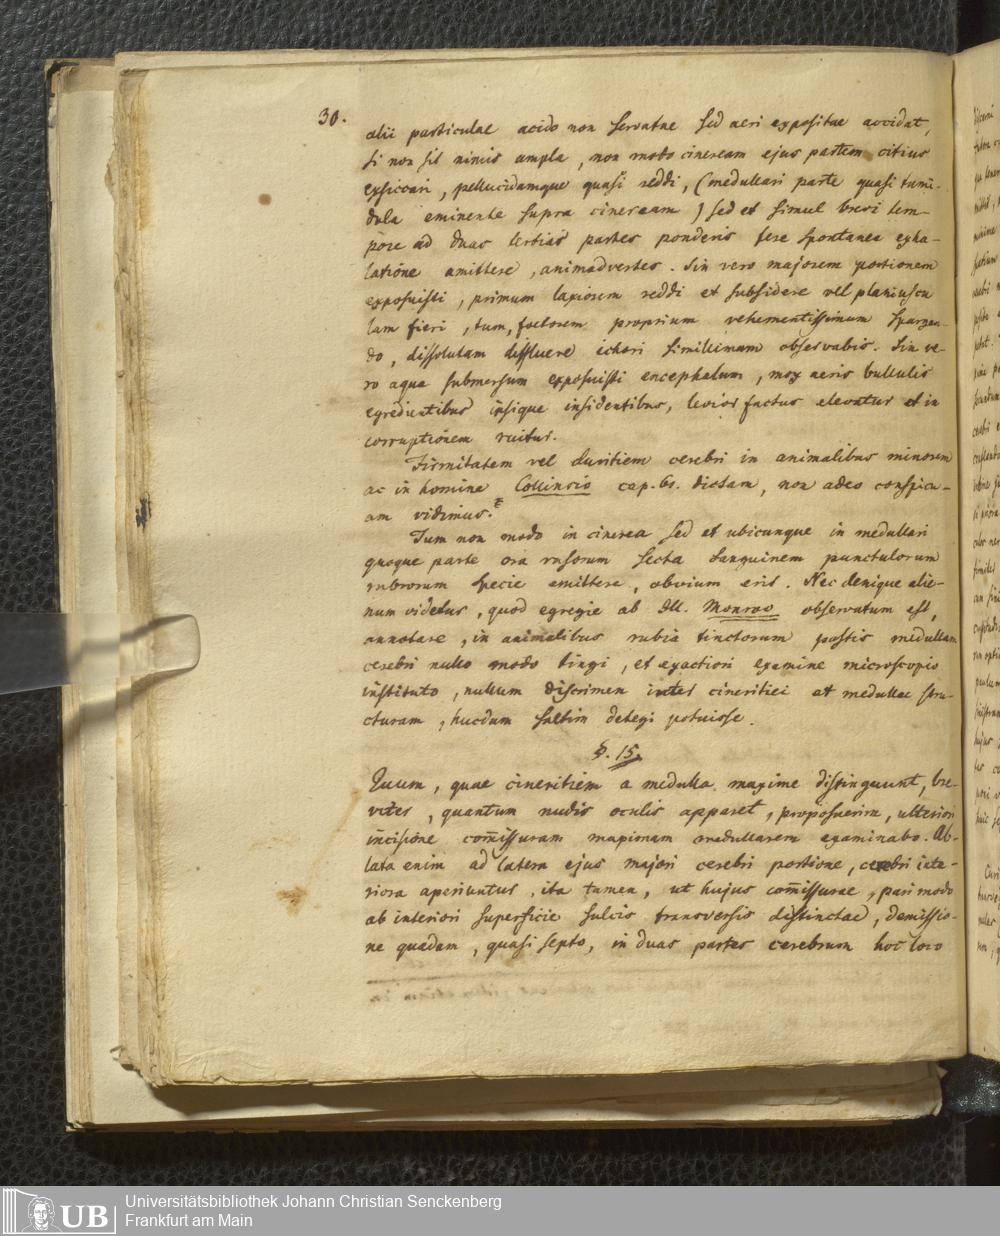 30.
alii particulae acido non servatae sed aeri expositae accidat,
si non sit nimis ampla, non modo cineream ejus partem citius
exsiccari, pellucidamque quasi reddi, (medullari parte quasi tumi-
dula eminente supra cineream) sed et simul brevi tem-
pore ad duas tertias partes ponderis fere spontanea exha-
latione amittere, animadvertes. Sin vero majorem portionem
exposuisti, primum laxiorem reddi et subsidere vel planiuscu
lam fieri, tum, foetorem proprium vehementissimum spargen-
do, dissolutam diffluere ichori simillimam observabis. Sin ve-
ro aqua submersum exposuisti encephalum, mox aeris bullulis
egredientibus insique insidentibus, levior factus elevatur et in
corruptionem ruitur.
Firmitatem vel duritiem cerebri in animalibus minorem
ac in homine Collinsio cap. 61. dictam, non adeo conspicu-
am vidimus.
Tum non modo in cinerea sed et ubicunque in medullari
quoque parte ora vasorum secta sanguinem punctulorum
rubrorum specie emittere, obvium eris. Nec denique alie-
num videtur, quod egregie ab Ill. Monroo observatum est,
annotare, in animalibus rubia tinctorum pastis medullam
cerebri nullo modo tingi, et exactiori examine microscopio
instituto, nullum discrimen inter cineritiei et medullae stru-
cturam, hucdum saltim detegi potuisse.
§. 15.
Quum, quae cineritiem a medulla maxime distinguunt, bre-
viter, quantum nudis oculis apparet, proposuerim, ulteriori
incisione com̄issuram maximam medullarem examinabo. Ab-
lata enim ad latera ejus majori cerebri portione, cerebri inte-
riora aperiuntur, ita tamen, ut hujus com̄issurae, pari modo
ab interiori superficie sulcis transversis distinctae, demissio-
ne quadam, quasi septo, in duas partes cerebrum hoc loco
UB
Universitätsbibliothek Johann Christian Senckenberg
Frankfurt am Main